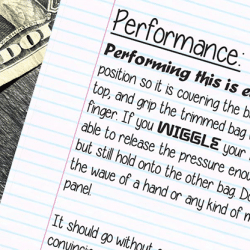 DOL
Performance:
Performing this is e
position so it is covering the b
top, and grip the trimmed bag
finger. If you WIGGLE your
able to release the pressure enou
but still hold onto the other bag. Do
the wave of a hand or any kind of m
panel.
It should go without
convincin